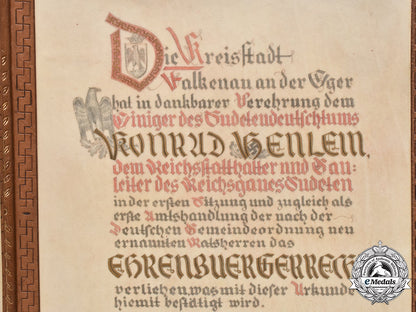 Die Kreisstadt
Falkenau an der Eger
hat in dankbarer Verehrung dem
Einiger des Sudetendeutschtums
KONRAD HENLEIN,
dem Reichsstatthalter und Gau=
leiter des Reichsgaues Sudeten
in der ersten Sitzung und zugleich als
erste Amtshandlung der nach der
Deutschen Gemeindeordnung neu
ernannten Ratsherren das
EHRENBUERGERRECH
verliehen, was mit dieser Urkunde
hiemit bestätigt wird.
eMedals